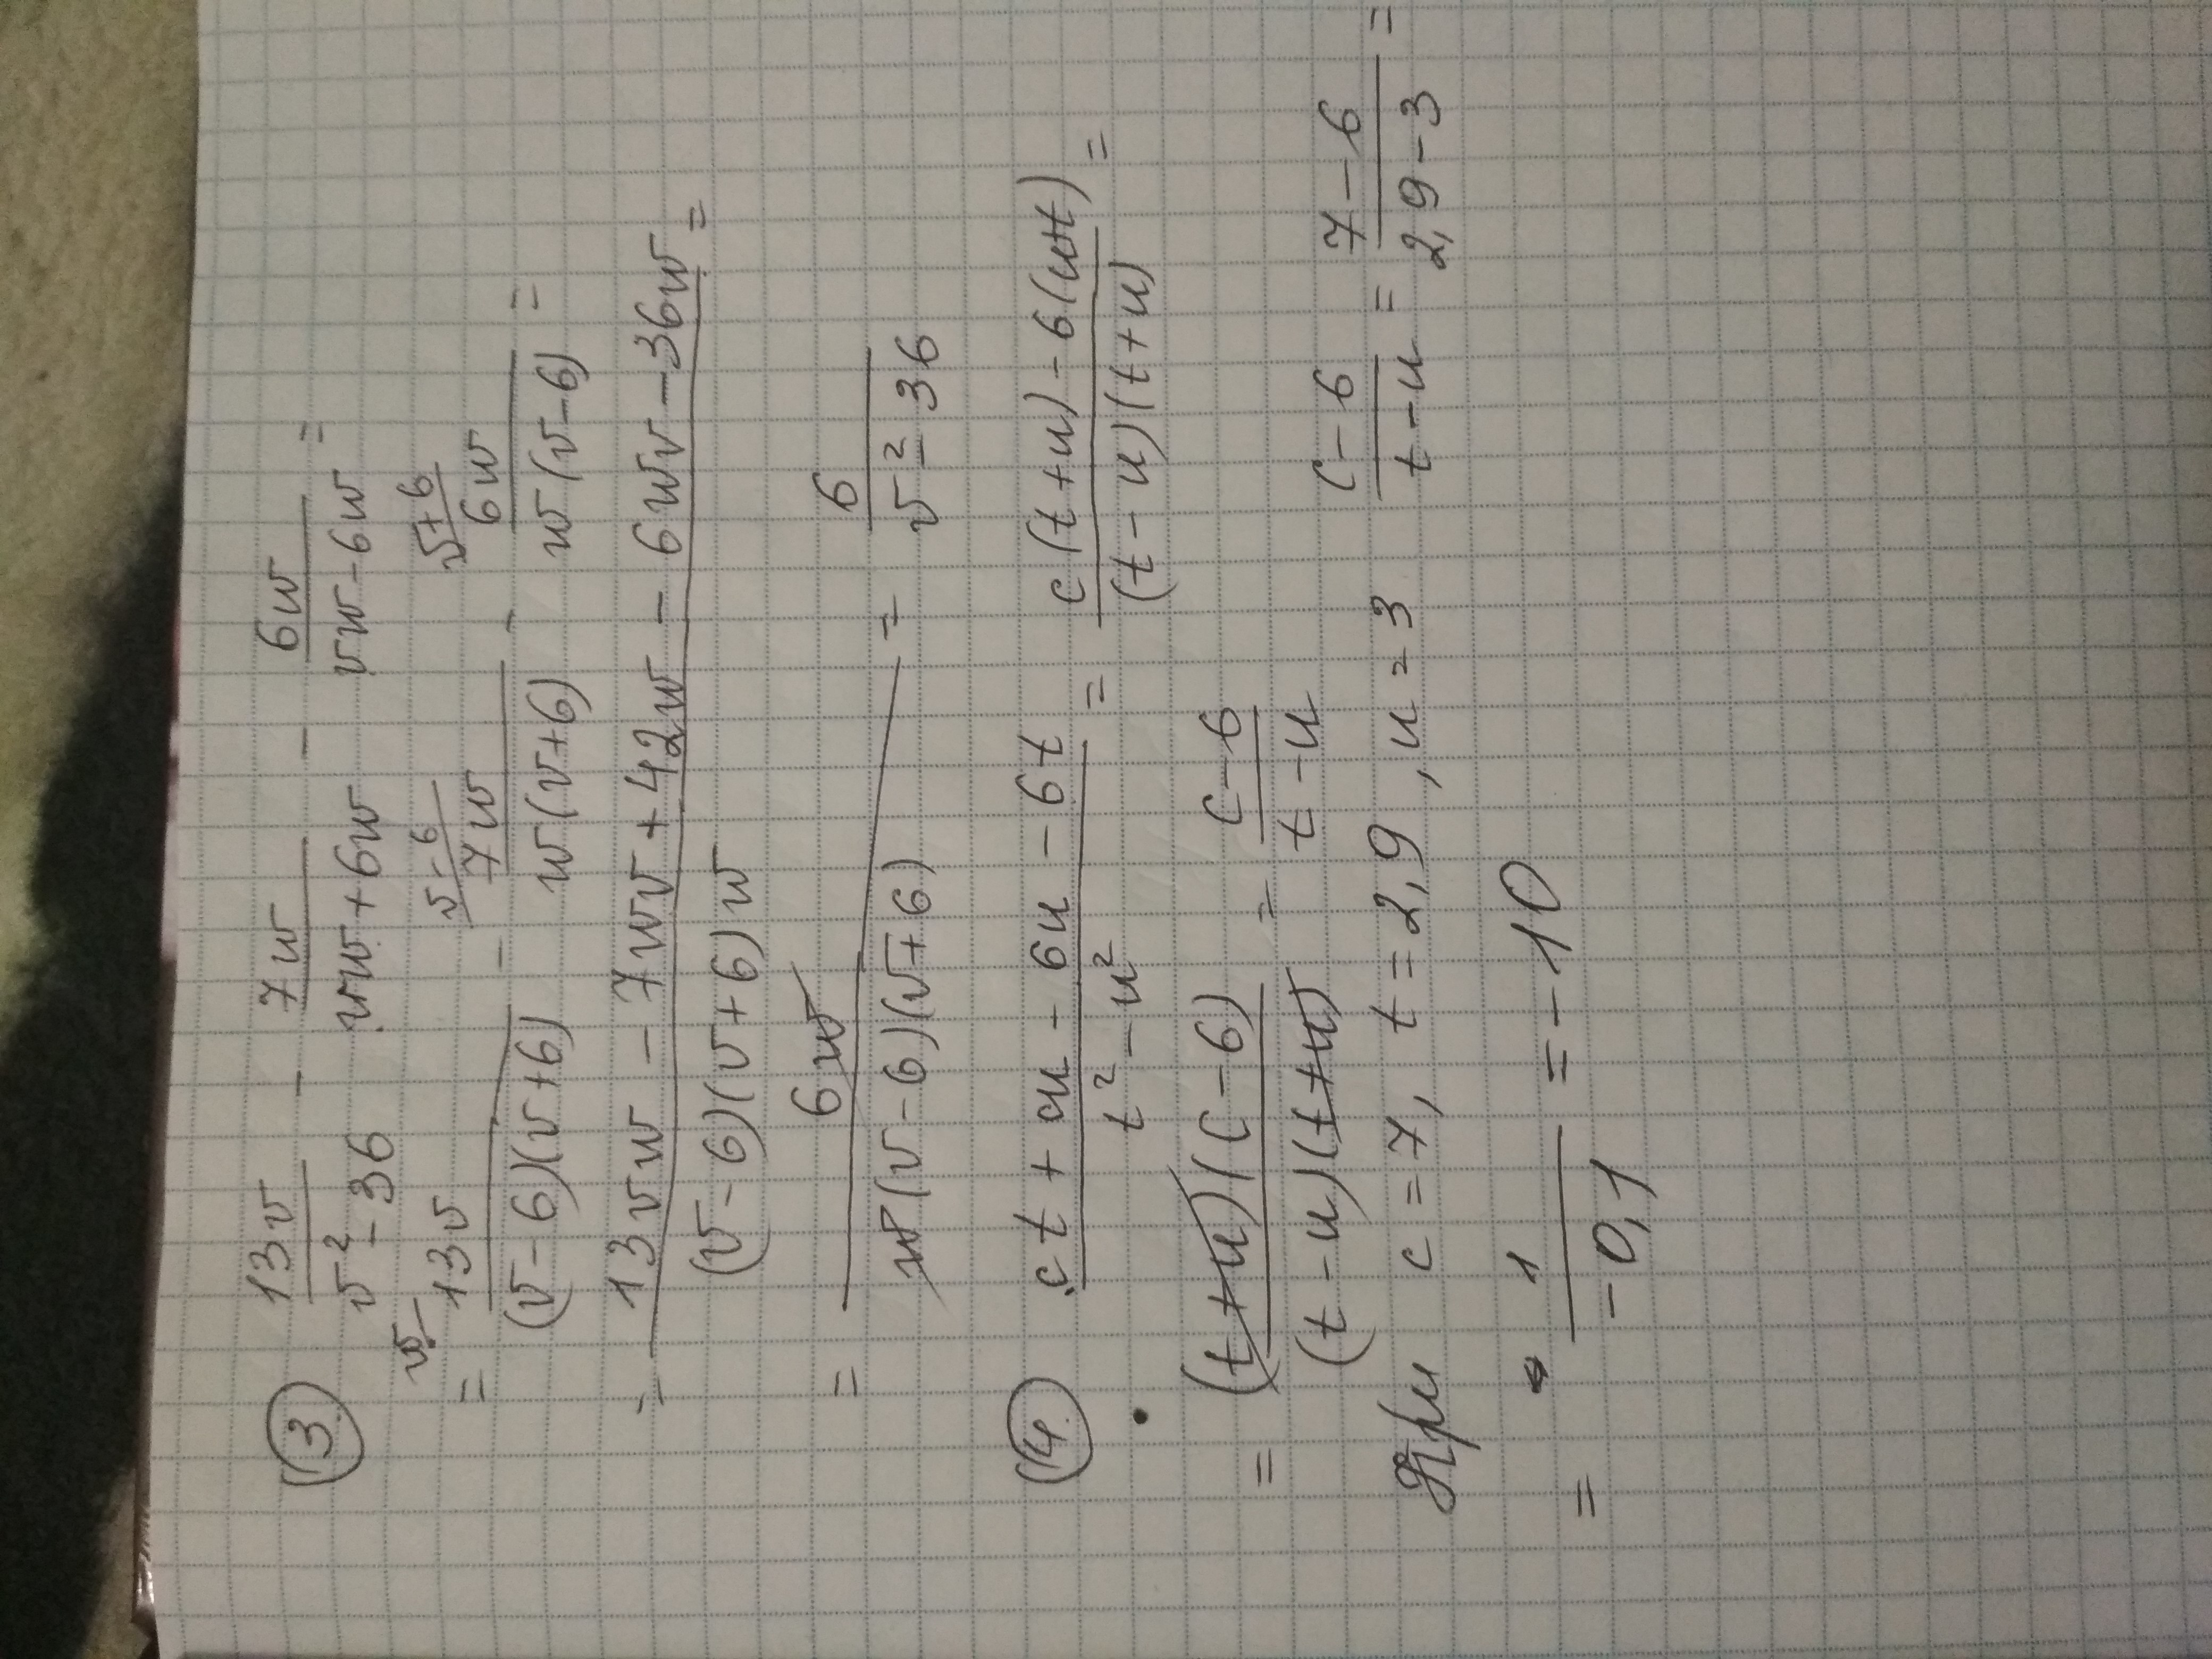 ③ 13v/(v² - 36) - 7w/(vw + 6w) - 6w/(vw - 6w) =
= 13v/((v - 6)(v + 6)) (w - 7w/(w(v + 6)) (v - 6 - 6w/(w(v - 6)) (v + 6 =
= (13vw - 7wv + 42w - 6wv - 36w)/((v - 6)(v + 6)w) =
= 6w/(w(v - 6)(v + 6)) = 6/(v² - 36)
④ (ct + cu - 6u - 6t)/(t² - u²) = (c(t + u) - 6(u+t))/((t - u)(t + u)) =
= ((t + u)(c - 6))/((t - u)(t + u)) = (c - 6)/(t - u)
При c = 7, t = 2,9, u = 3 (c - 6)/(t - u) = (7 - 6)/(2,9 - 3) =
= 1/(-0,1) = -10